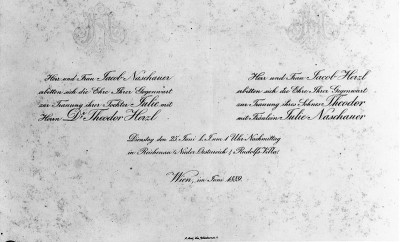 Herr und Frau Jacob Naschauer
erbitten sich die Ehre Ihrer Gegenwart
zur Trauung ihrer Tochter Julie mit
Herrn Dr Theodor Herzl
Herr und Frau Jacob Herzl
erbitten sich die Ehre Ihrer Gegenwart
zur Trauung ihres Sohnes Theodor
mit Fräulein Julie Naschauer
Dienstag den 25 Juni l. J. um 1 Uhr Nachmittag
in Reichenau Nieder Oesterreich Rudolfs Villa
Wien, im Juni 1889.